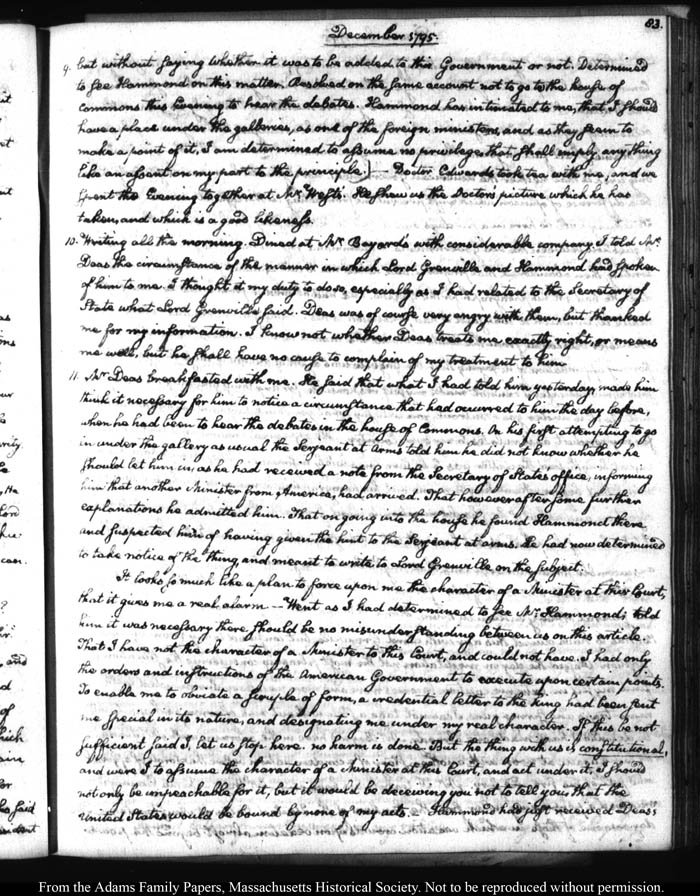 83.
December 1795.
9. but without saying whether it was to be added to this Government or not. Determined
to see Hammond on this matter. Resolved on the same account not to go to the house of
Commons this Evening to hear the debates. Hammond has intimated to me, that I should
have a place under the galleries, as one of the foreign ministers, and as they seem to
make a point of it, I am determined to assume no privilege that shall imply any thing
like an assent on my part to the principle.)— Doctor Edwards took tea with me, and we
spent the Evening together at Mr. West's. He shew us the Doctor's picture which he has
taken, and which is a good likeness.
10. Writing all the morning. Dined at Mr. Bayard's with considerable company. I told Mr.
Deas the circumstance of the manner in which Lord Grenville and Hammond had spoken
of him to me. I thought it my duty to do so, especially as I had related to the Secretary of
State what Lord Grenville said. Deas was of course very angry with them, but thanked
me for my information. I know not whether Deas treats me exactly right, or means
me well, but he shall have no cause to complain of my treatment to him.
11. Mr. Deas breakfasted with me. He said that what I had told him yesterday, made him
think it necessary for him to notice a circumstance that had occurred to him the day before,
when he had been to hear the debates in the house of Commons. On his first attempting to go
in under the gallery as usual the Serjeant at Arms told him he did not know whether he
should let him in, as he had received a note from the Secretary of State's office, informing
him that another Minister from America, had arrived. That however after some further
explanations he admitted him. That on going into the house he found Hammond there
and suspected him of having given the hint to the Serjeant at arms. He had now determined
to take notice of the thing, and meant to write to Lord Grenville on the subject.
It looks so much like a plan to force upon me the character of a Minister at this Court,
that it gives me a real alarm — Went as I had determined to see Mr. Hammond; told
him it was necessary there should be no misunderstanding between us on this article.
That I have not the character of a Minister to this Court, and could not have. I had only
the orders and instructions of the American Government to execute upon certain points.
To enable me to obviate a scruple of form, a credential letter to the King had been sent
me special in its nature, and designating me under my real character. If this be not
sufficient said I, let us stop here. no harm is done. But the thing with us is constitutional,
and were I to assume the character of a Minister at this Court, and act under it, I should
not only be impeachable for it, but it would be deceiving you not to tell you that the
United States would be bound by none of my acts. — Hammond had just received Deas's
From the Adams Family Papers, Massachusetts Historical Society. Not to be reproduced without permission.